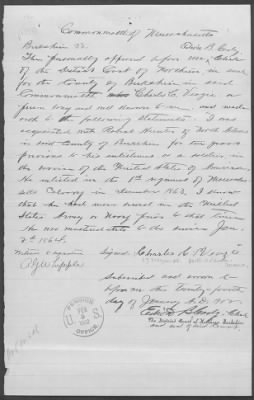 Commonwealth of Massachusetts
Berkshire ss. Edwin B. Cady
Then personally appeared before me, Clerk
of the District Court of Northern in and
for the County of Berkshire in said
Commonwealth Charles C.
and well known to me and made
oath to the following statements: I was
acquainted with Robert of North Adams
in said County of Berkshire for ten years
previous to his enlistment as a soldier in
the service of the United States of America.
He enlisted in the 1st regiment of Massachu
setts Cavalry in December 1863, I know
that he had never served in the United
States Army or Navy prior to that time
He was mustered into the service Jan.
2nd 1864.
Witness to signature Signed Charles C.
A. G. Whipple
Subscribed and sworn to
before me this twenty-fourth
day of January A.D. 1902
Edwin B. Cady, Clerk
The District Court of Northern Berkshire
PENSION
FEB
1902
OFFICE
U S